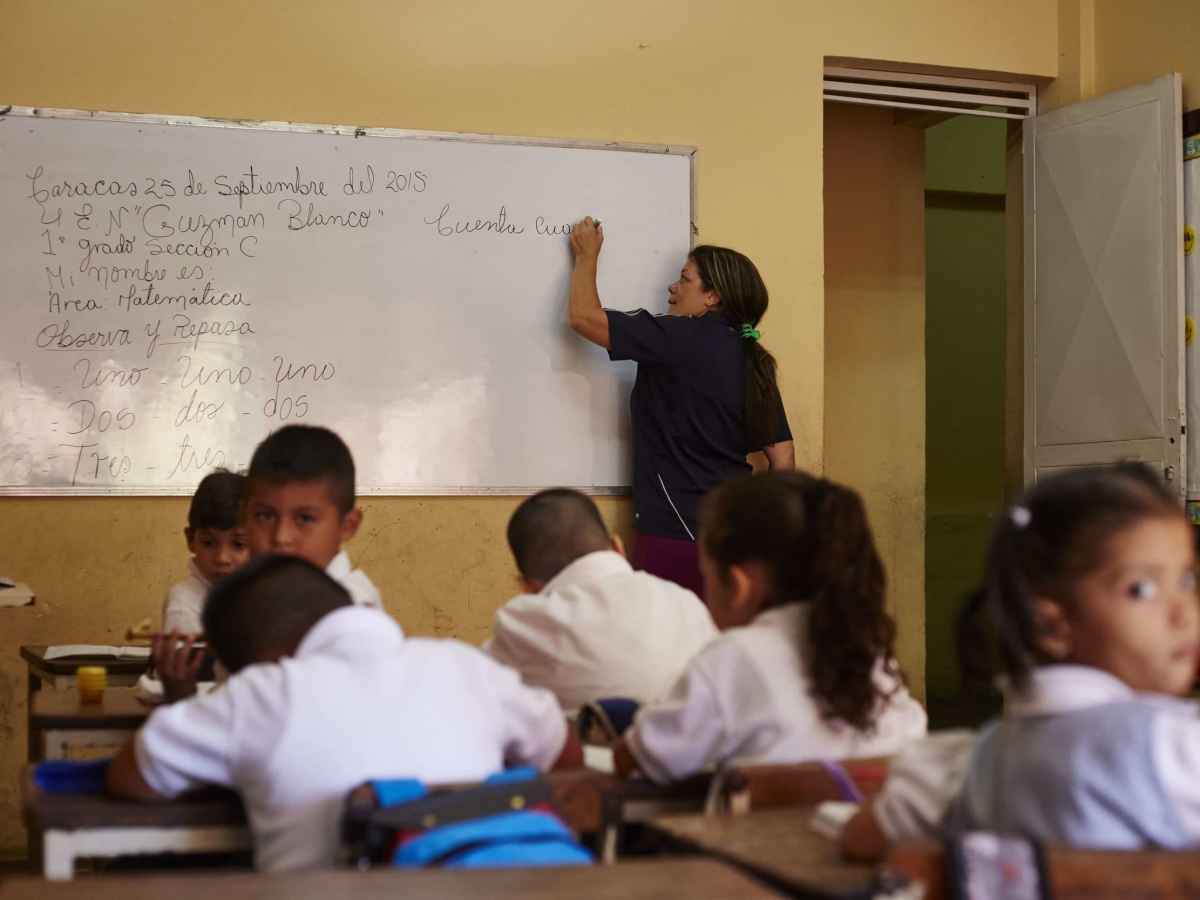 Caracas 25 de Septiembre del 2015
U E. N "Guzman Blanco"
1° grado Sección C
Mi nombre es:
Area: Matemática
Observa y Repasa
1 - Uno - Uno - Uno
- Dos - dos - dos
- Tres - tres -
Cuenta cua